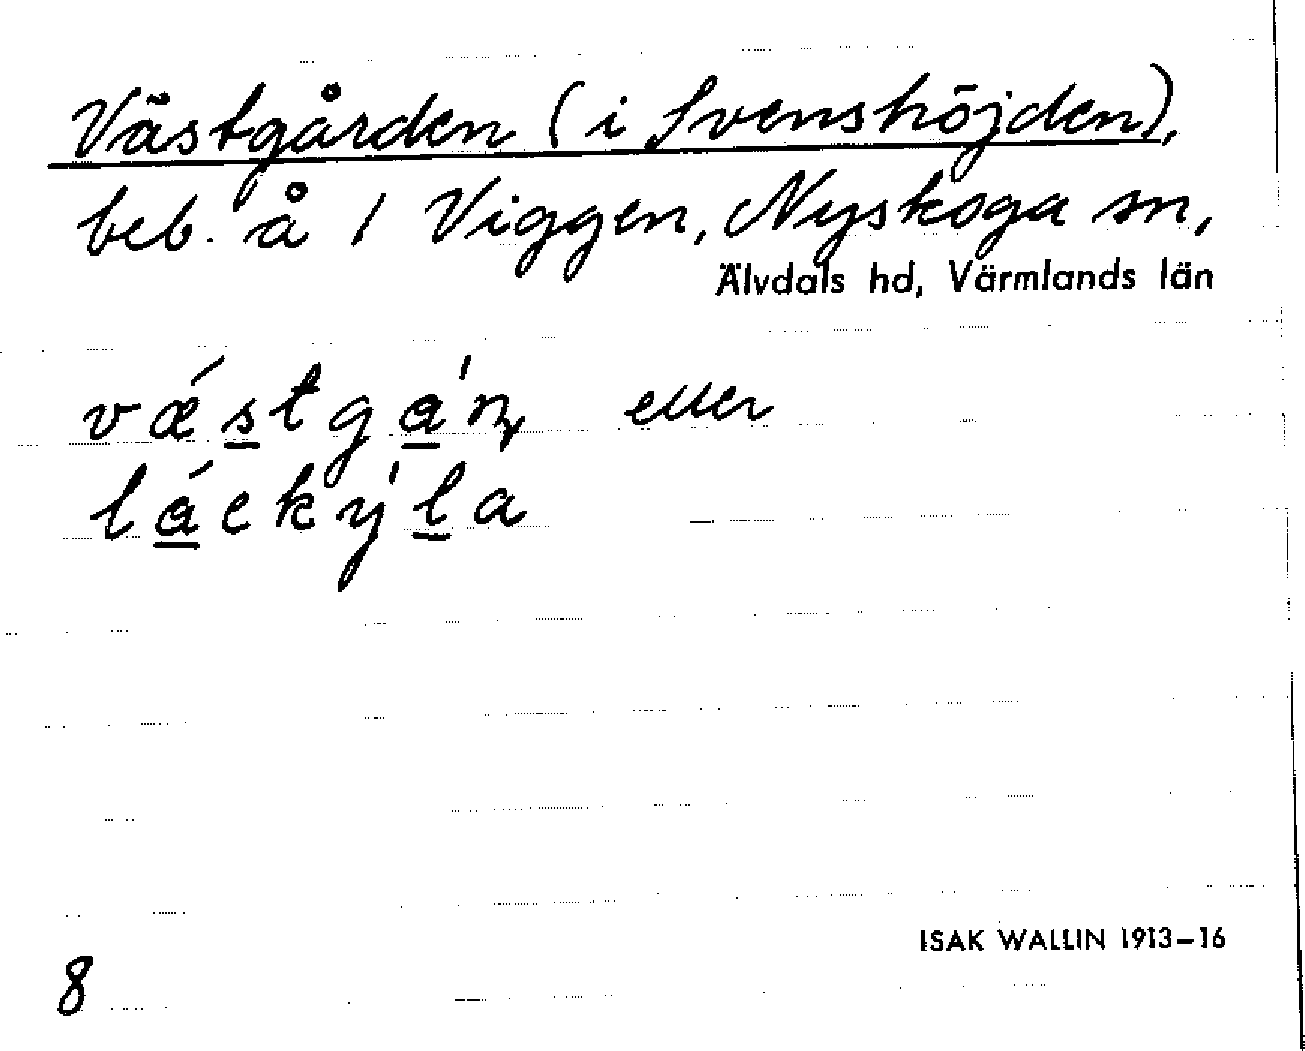 Västgården (i Svenshöjden),
beb. å 1 Viggen, Nyskoga sn,
Älvdals hd, Värmlands län
vǽstgán, eller
láckýla
8
ISAK WALLIN 1913–16